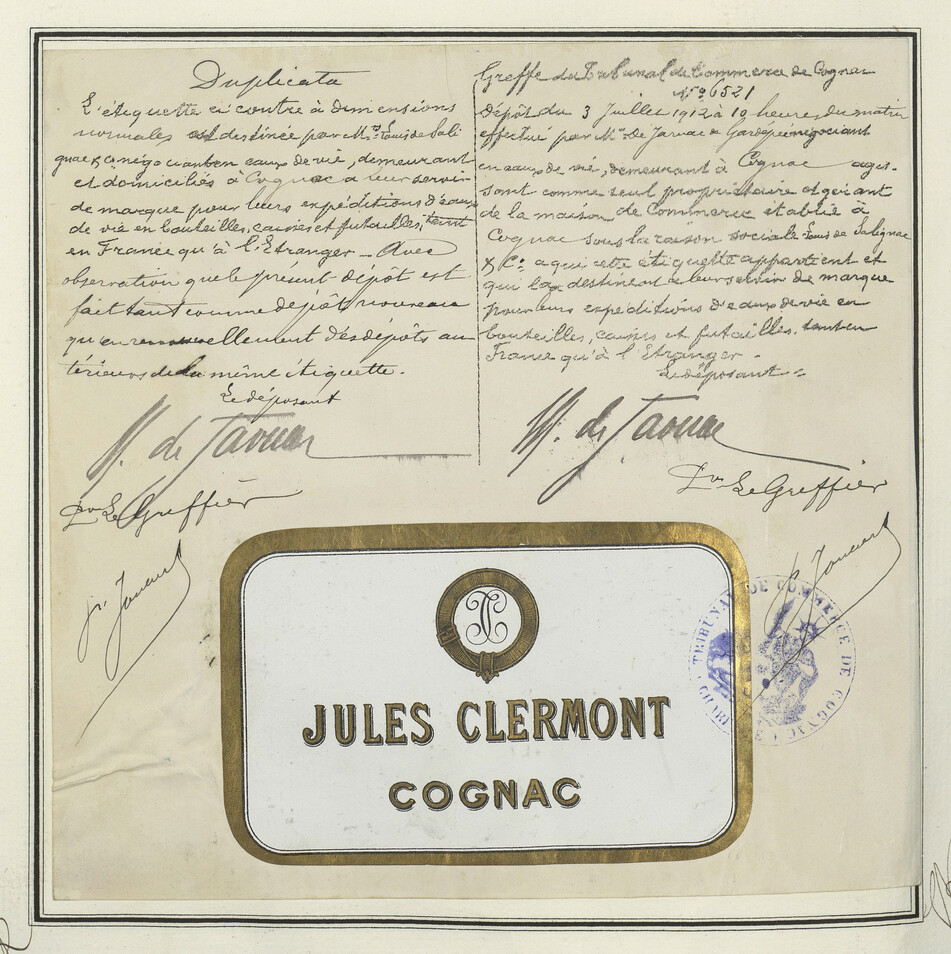 Duplicata
L'étiquette ci contre à dimensions
normales est destinée par Mrs Louis de Sali-
gnac & Co négociants en eaux de vie, demeurant
et domiciliés à Cognac à leur servir
de marque pour leurs expéditions d'eaux
de vie en bouteilles, caisses et futailles, tant
en France qu'à l'Etranger - Avec
observation que le présent dépôt est
fait tant comme dépôt nouveau
qu'en renouvellement des dépôts an
térieurs de la même étiquette.
Le déposant
Le Greffier
Greffe du Tribunal de Commerce de Cognac
No 6521
Dépôt du 3 Juillet 1912 à 10 heures du matin
effectué par Mr de Jarnac de Gardepée négociant
en eaux de vie, demeurant à Cognac agis-
sant comme seul propriétaire et gérant
de la maison de Commerce établie à
Cognac sous la raison sociale Louis de Salignac
& Co. a qui cette étiquette appartient et
qui la destinent a leur servir de marque
pour leurs expéditions d'eaux de vie en
bouteilles, caisses et futailles. tant en
France qu'à l'Etranger -
Le déposant -
Le Greffier
JC
JULES CLERMONT
COGNAC
TRIBUNAL DE COMMERCE DE COGNAC